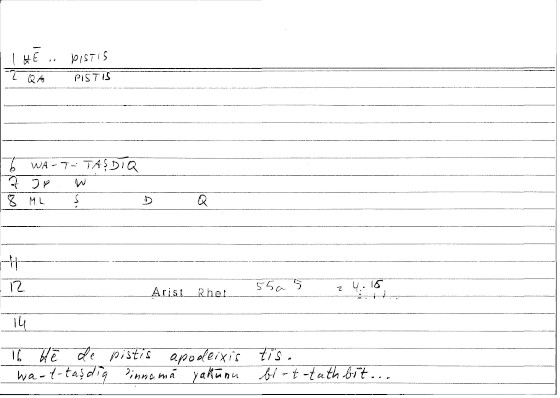 1 HĒ .. PISTIS
2 QA PISTIS
6 WA-T-TAṢDĪQ
7 JP W
8 ML Ṣ D Q
11
12 Arist Rhet 55a5 = 4:15
14
16 HĒ de pistis apodeixis tis.
wa-t-taṣdīq ʾinnamā yakūnu bi-t-tathbīt...